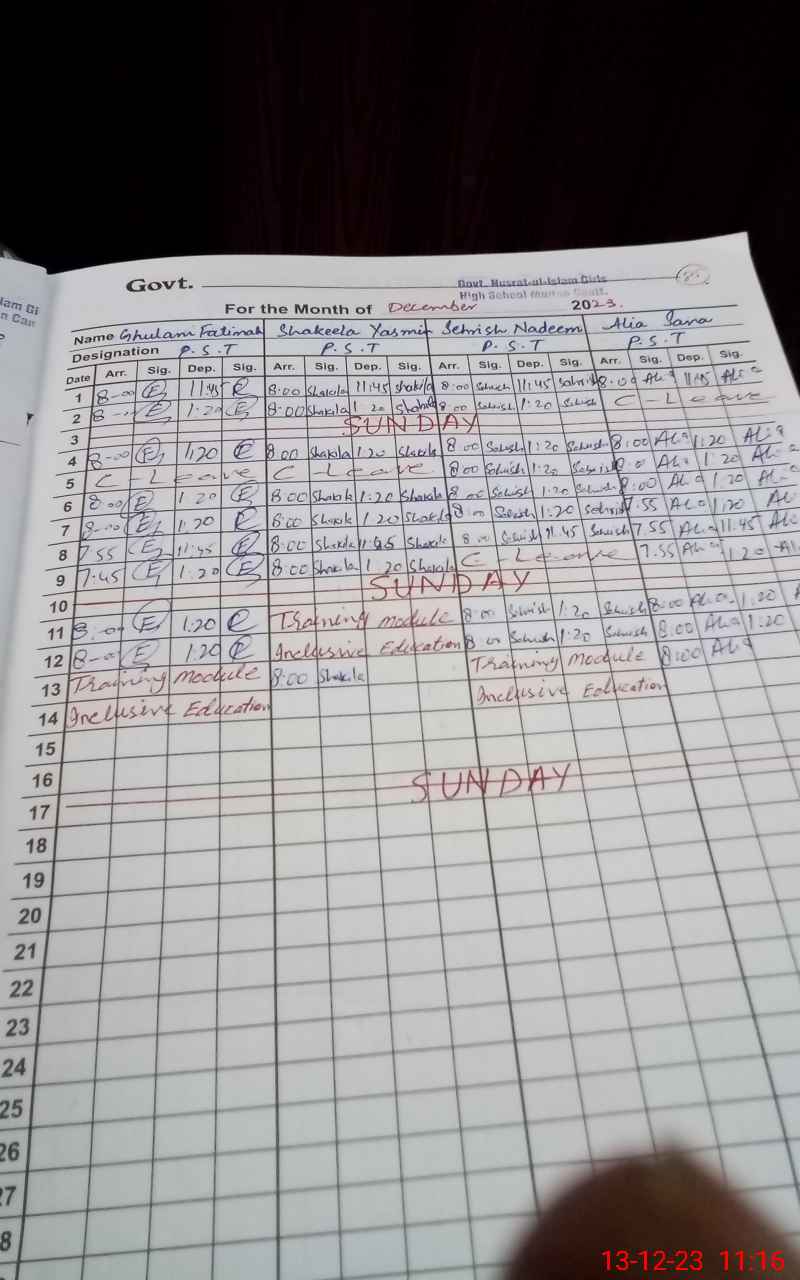 lam Gi
n Can
Govt.
Govt. Nusrat-ul-Islam Girls
High School
For the Month of December 2023.
Name Ghulam Fatimah Shakeela Yasmin Sehrish Nadeem Alia Sana
Designation P.S.T P.S.T P.S.T P.S.T
Date Arr. Sig. Dep. Sig. Arr. Sig. Dep. Sig. Arr. Sig. Dep. Sig. Arr. Sig. Dep. Sig.
1 8-00 E 11:45 E 8:00 Shakila 11:45 Shakila 8:00 Sehrish 11:45 Sehrish 8:00 Alia 11:45 Alia
2 8-00 E 1:20 E 8:00 Shakila 1 20 Shakila 8:00 Sehrish 1:20 Sehrish C-Leave
3 SUNDAY
4 8-00 E 1:20 E 8:00 Shakila 1:20 Shakila 8 00 Sehrish 1:20 Sehrish 8:00 Alia 1:20 Alia
5 C-Leave C-Leave 8:00 Sehrish 1:20 Sehrish 8:00 Alia 1:20 Alia
6 8:00 E 1 20 E 8:00 Shakila 1:20 Shakila 8 00 Sehrish 1:20 Sehrish 8:00 Alia 1:20 Alia
7 8-00 E 1:20 E 8:00 Shakila 1:20 Shakila 8:00 Sehrish 1:20 Sehrish 7.55 Alia 1:20 Al
8 7 55 E 11:45 E 8:00 Shakila 11:45 Shakila 8 00 Sehrish 11.45 Sehrish 7.55 Alia 11:45 Alia
9 7:45 E 1:20 E 8:00 Shakila 1 20 Shakila C-Leave 7.55 Alia 1 20 Alia
10 SUNDAY
11 8:00 E 1.20 E Training module 8:00 Sehrish 1:20 Sehrish 8:00 Alia 1:20 A
12 8-00 E 1:20 E Inclusive Education 8 00 Sehrish 1:20 Sehrish 8:00 Alia 1:20
13 Training Module 8:00 Shakila Training Module 8:00 Alia
14 Inclusive Education Inclusive Education
15
16
17 SUNDAY
18
19
20
21
22
23
24
25
26
27
8
13-12-23 11:16